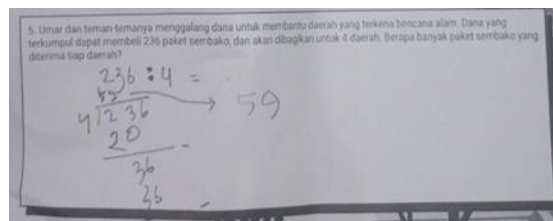 5. Umar dan teman-temanya menggalang dana untuk membantu daerah yang terkena bencana alam. Dana yang
terkumpul dapat membeli 236 paket sembako, dan akan dibagikan untuk 4 daerah. Berapa banyak paket sembako yang
diterima tiap daerah?
236 : 4 = ...
59
4 236 → 59
20 -
36
36 -